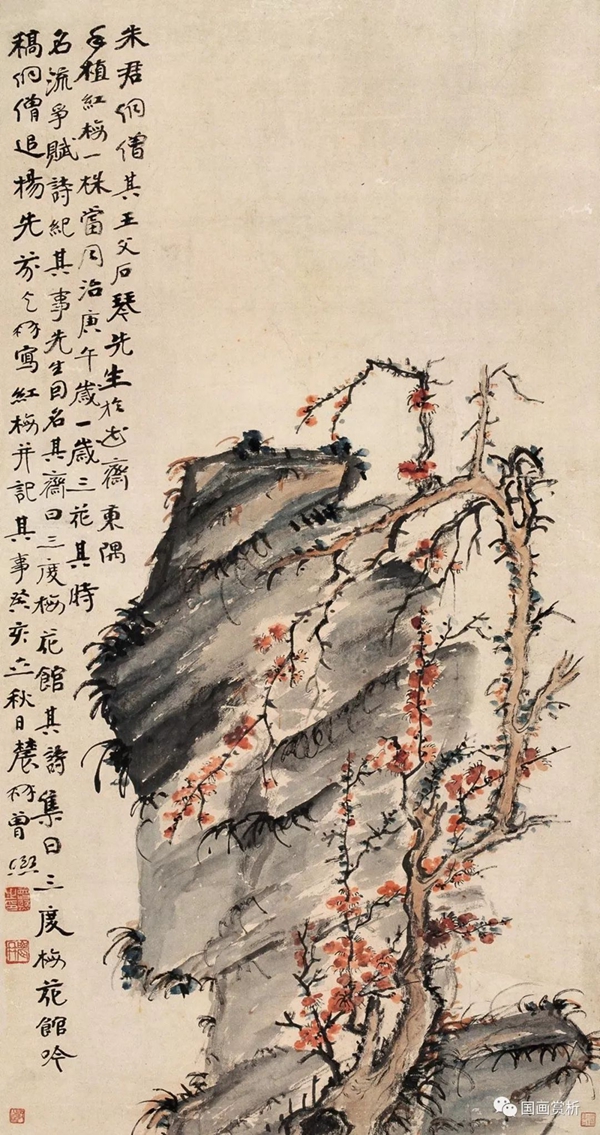 朱君侗僧其王父石琴先生於齋東隅
手植紅梅一株當同治庚午歲一歲三花其時
名流爭賦詩紀其事先生因名其齋曰三度梅花館其詩集曰三度梅花館吟
稿侗僧追楊先芬乞髯寫紅梅并記其事癸亥立秋日農髯曾熙
国画赏析